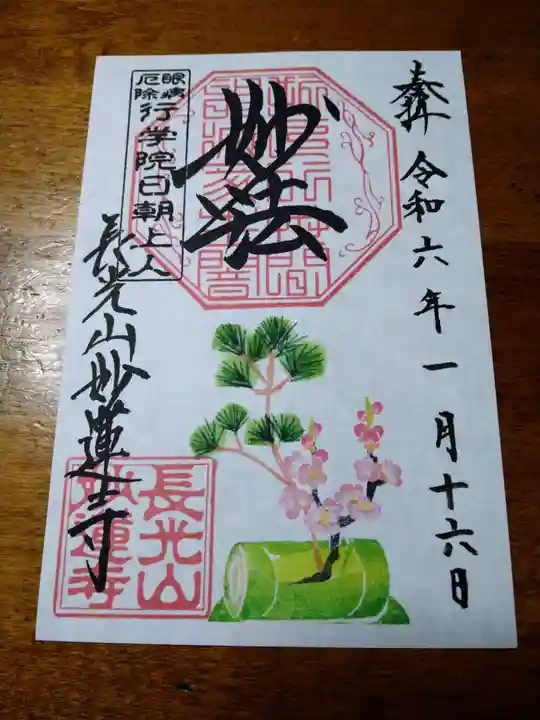 奉拝 令和六年一月十六日
妙法
眼病
厄除
行学院日朝上人
長光山妙蓮寺
長光山
妙蓮寺